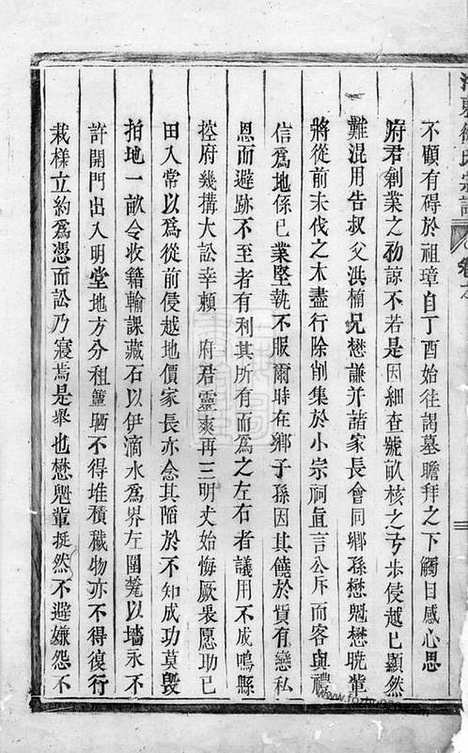 不顧有碍於祖璋自丁酉始往謁墓瞻拜之下觸目感心思
府君創業之初諒不若是因細查號畝核之弓步侵越已顯然
難混用告叔父洪楠兄懋謙并諸家長會同鄉孫懋魁懋晄輩
將從前未伐之木盡行除削集於小宗祠直言公斥而客與禮
信爲地係已業堅執不服爾時在鄉子孫因其饒於貲有戀私
恩而避跡不至者有利其所有而爲之左右者議用不成鳴縣
控府幾搆大訟幸賴 府君靈爽再三明丈始悔厥衷愿功已
田入常以爲從前侵越地價家長亦念其陥於不知成功莫毀
拍地一畝令收籍輸課藏石以伊滴水爲界左圍甃以墻永不
許開門出入明堂地方分租簟晒不得堆積穢物亦不得復行
栽樣立約爲憑而訟乃寢焉是舉也懋魁輩挺然不避嫌怨不
宗譜